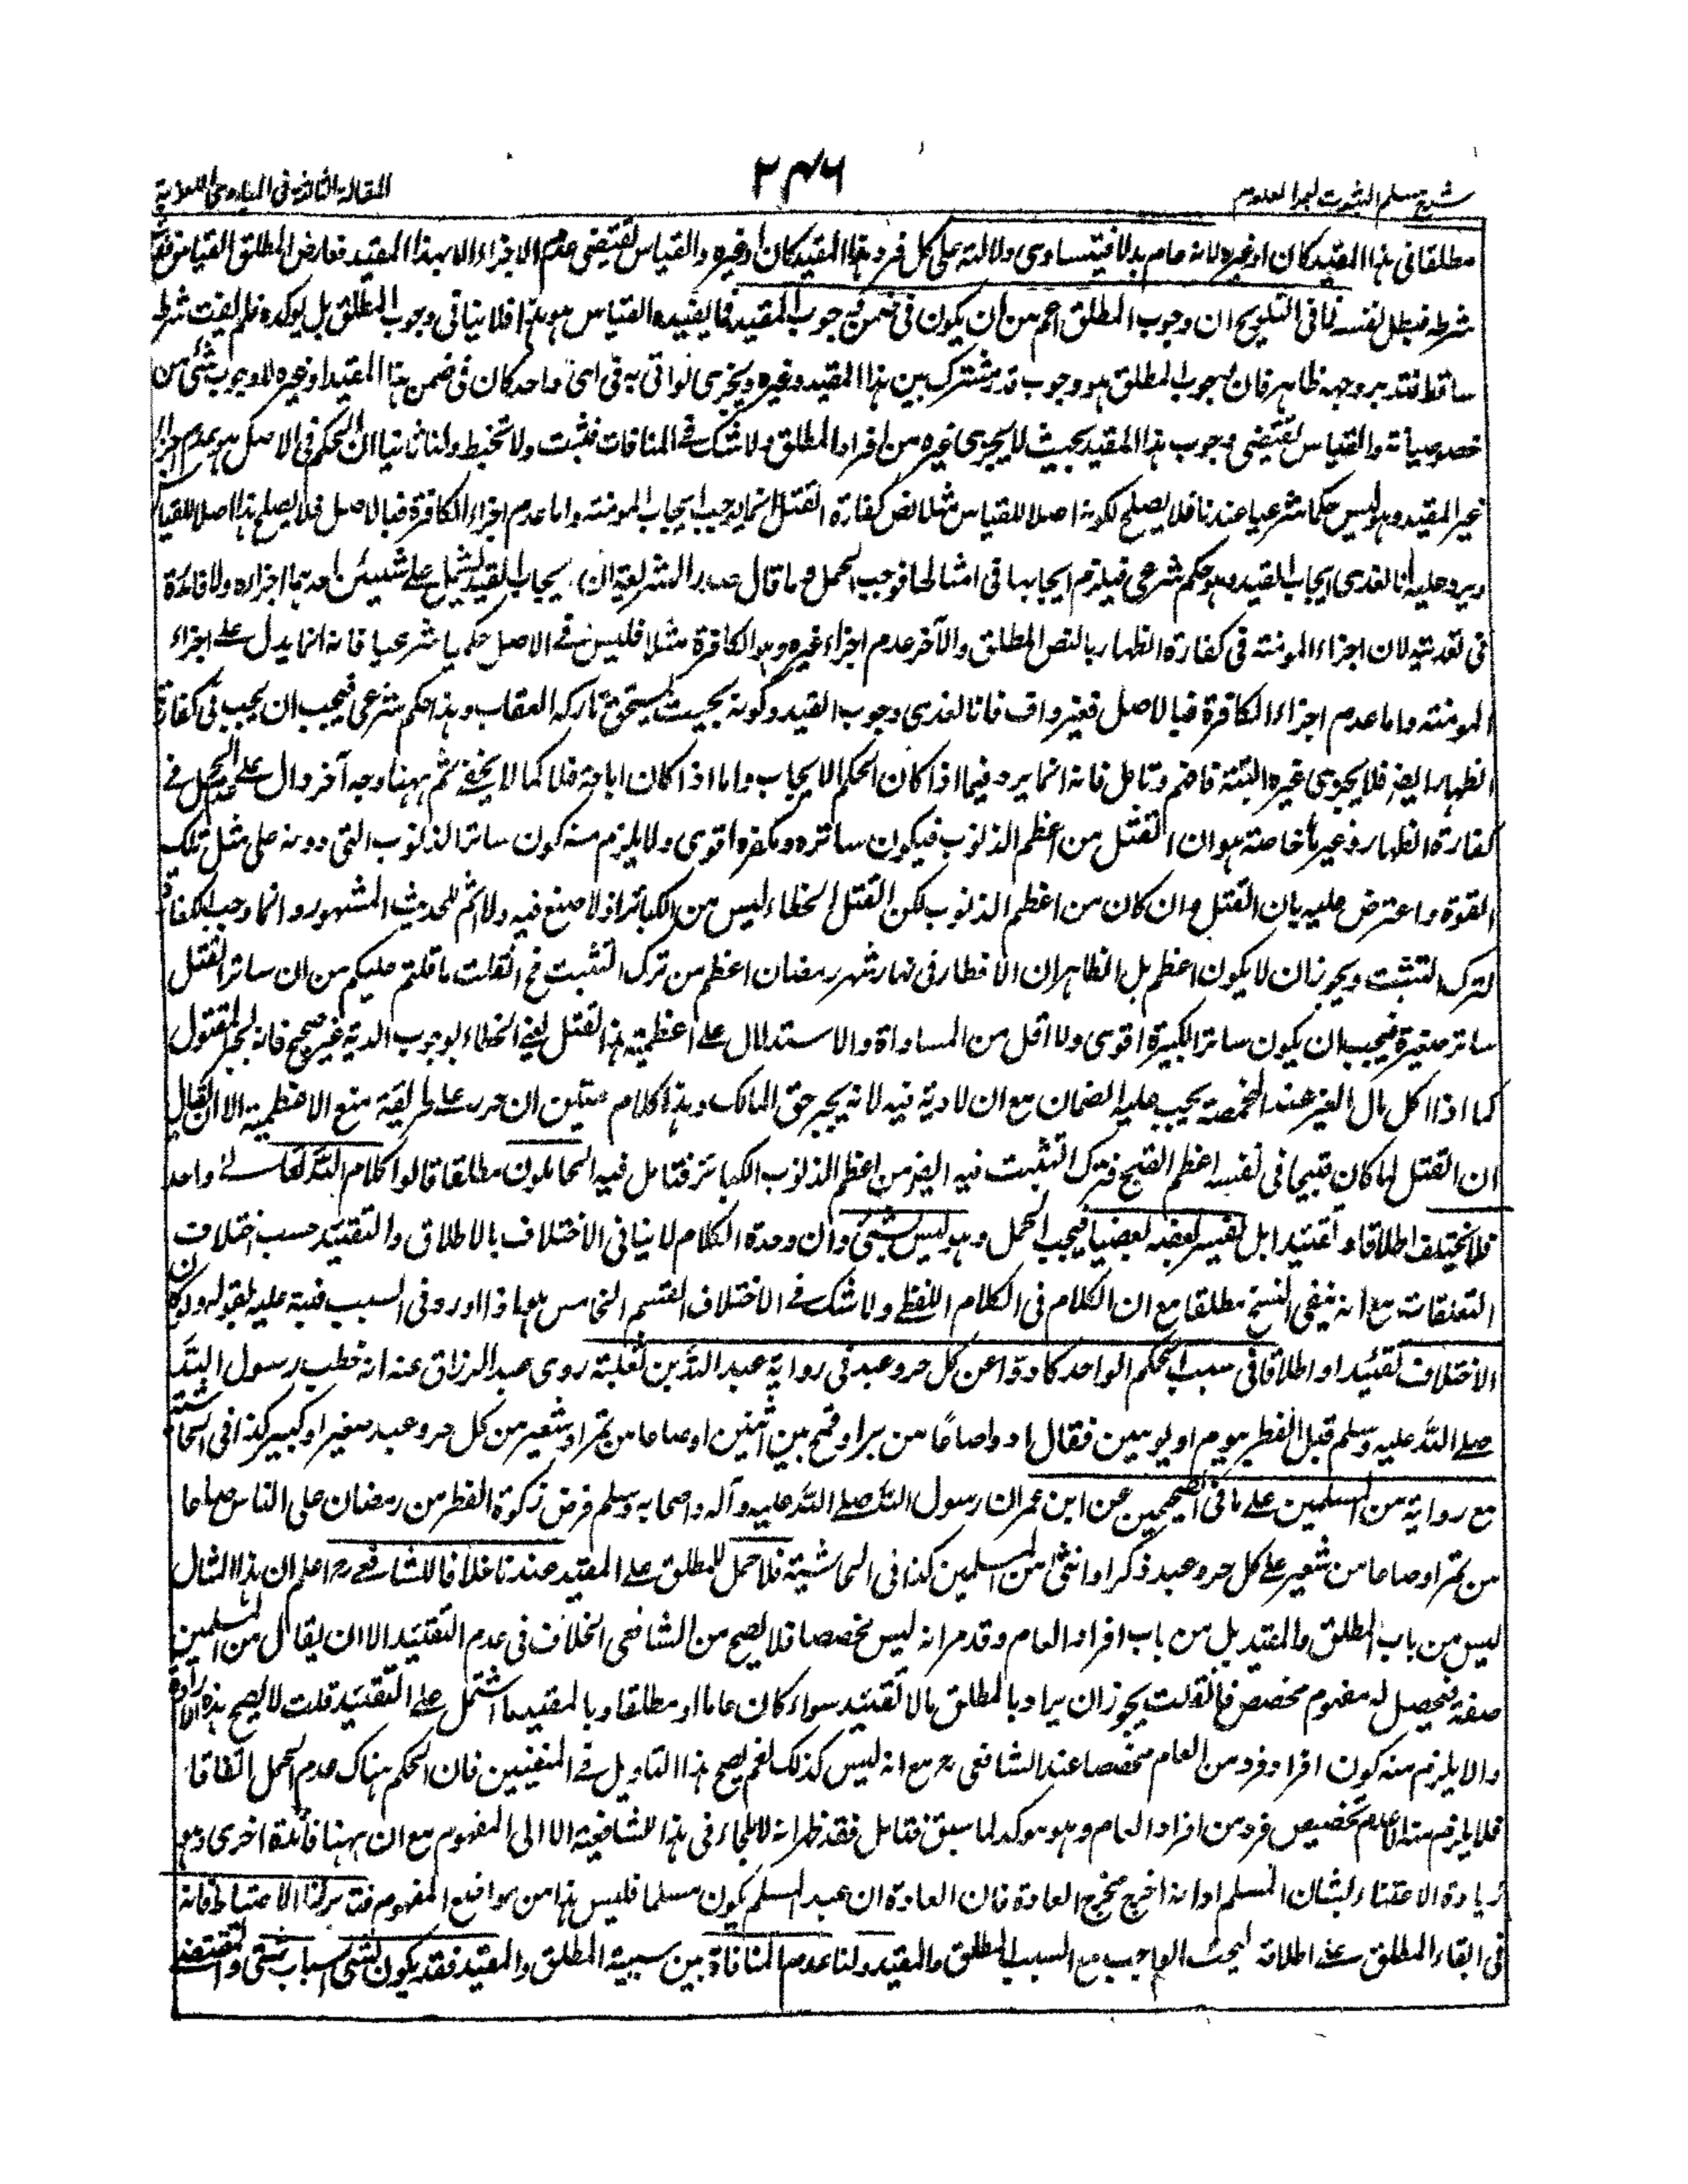 شرح مسلم الثبوت لبحر العلوم
٢٤٦
المقالة الثالثة فى المبادى اللغوية
مطلقا فى هذا المقيد كان او غيره لانه عام بدلا فيتساوى دلالته على كل فرد هذا المقيد كان او غيره والقياس يقتضى عدم الاجزاء الا بهذا المقيد فعارض المطلق القياس ففقد
شرطه فبطل نفسه فما فى التلويح ان وجوب المطلق اعم من ان يكون فى ضمن وجوب المقيد فما يفيده القياس هو هذا فلا ينافى وجوب المطلق بل يوكده فلم يفت شرطه
ساقط فتدبر وجهه ظاهر فان وجوب المطلق هو وجوب قدر مشترك بين هذا المقيد وغيره ويجزى لو اتى به فى اى واحد كان فى ضمن هذا المقيد او غيره لا وجوب شئ من
خصوصياته والقياس يقتضى وجوب هذا المقيد بحيث لا يجزى غيره من افراد المطلق ولا شك فى المنافات فتثبت ولا تخبط ولنا ثانيا ان الحكم فى الاصل هو عدم اجزاء
غير المقيد وهو ليس حكما شرعيا عندنا فلا يصلح لكونه اصلا للقياس مثلا نص كفارة القتل انما يوجب ايجاب المومنة واما عدم اجزاء الكافرة فبالاصل فلا يصلح هذا اصلا للقياس
ويرد عليه انا نعدى ايجاب القيد وهو حكم شرعى فيلزم ايجابها فى امثالها فوجب الحمل وما قال صدر الشريعة ان ايجاب القيد يشتمل على شيئين احدهما اجزاءه ولا فائدة
فى تعديته لان اجزاء المومنة فى كفارة الظهار بالنص المطلق والآخر عدم اجزاء غيره وهو الكافرة مثلا فليس فى الاصل حكما شرعيا فانه انما يدل على اجزاء
المومنة واما عدم اجزاء الكافرة فبالاصل فغير واف فانا نعدى وجوب القيد وكونه بحيث يستحق تاركه العقاب وهذا حكم شرعى فيجب ان يجب فى كفارة
الظهار ايضا فلا يجزى غيره البتة فافهم وتامل فانه انما يرد فيما اذا كان الحكم الايجاب واما اذا كان اباحة فلا كما لا يخفى ثم ههنا وجه آخر دال على عدم الحمل فى
كفارة الظهار وغيرها خاصة هو ان القتل من اعظم الذنوب فيكون ساتره ومكفره اقوى ولا يلزم منه كون ساتر الذنوب التى دونه على مثل تلك
القوة واعترض عليه بان القتل وان كان من اعظم الذنوب لكن القتل الخطاء ليس من الكبائر اذ لا صنع فيه ولا اثم للحديث المشهور وانما وجب الكفارة
لترك التثبت ويجوز ان لا يكون اعظم بل الظاهر ان الافطار فى نهار شهر رمضان اعظم من ترك التثبت فح انقلب ما قلتم عليكم من ان ساتر القتل
ساتر صغيرة فيجب ان يكون ساتر الكبيرة اقوى ولا اقل من المساواة والاستدلال على اعظمية هذا القتل يعنى الخطاء بوجوب الدية غير صحيح فانه لجبر المقتول
كما اذا اكل مال الغير عند المخمصة يجب عليه الضمان مع ان لا دية فيه لانه يجبر حق المالك وهذا كلام متين ان حرر على طريقة منع الاعظمية الا ان يقال
ان القتل لما كان قبيحا فى نفسه اعظم القبح فترك التثبت فيه ايضا من اعظم الذنوب الكبائر فتامل فيه الحاملون مطلقا قالوا كلام الله تعالى واحد
فلا يختلف اطلاقا وتقييدا بل يفسر بعضه بعضا فيجب الحمل وهو ليس بشئ وان وحدة الكلام لا ينافى الاختلاف بالاطلاق والتقييد حسب اختلاف
التعلقات مع انه ينفى النسخ مطلقا مع ان الكلام فى الكلام اللفظى ولا شك فى الاختلاف القسم الخامس ما اذا ورد فى السبب فنبه عليه بقوله ولو كان
الاختلاف تقييدا واطلاقا فى سبب الحكم الواحد كادوا عن كل حر وعبد فى رواية عبد الله بن ثعلبة روى عبد الرزاق عنه انه خطب رسول الله
صلى الله عليه وسلم قبل الفطر بيوم او يومين فقال ادوا صاعا من بر او قمح بين اثنين او صاعا من تمر او شعير من كل حر وعبد صغير او كبير كذا فى الحاشية
مع رواية من المسلمين على ما فى الصحيحين عن ابن عمر ان رسول الله صلى الله عليه وآله واصحابه وسلم فرض زكوة الفطر من رمضان على الناس صاعا
من تمر او صاعا من شعير على كل حر وعبد ذكر او انثى من المسلمين كذا فى الحاشية فلا حمل للمطلق على المقيد عندنا خلافا للشافعى رح اعلم ان هذا المثال
ليس من باب المطلق والمقيد بل من باب افراد العام وقد مر انه ليس تخصيصا فلا يصح من الشافعى الخلاف فى عدم التقييد الا ان يقال من المسلمين
صفة فيحصل له مفهوم مخصص فانقلت يجوز ان يراد بالمطلق ما لا تقييد سواء كان عاما او مطلقا وبالمقيد ما اشتمل على التقييد قلت لا يصح هذه الارادة
والا يلزم منه كون افراد فرد من العام مخصصا عند الشافعى رح مع انه ليس كذلك نعم يصح هذا التاويل فى المنفيين فان الحكم هناك عدم الحمل اتفاقا
فلا يلزم منه الا عدم تخصيص فرد من افراد العام وهو موكد لما سبق فتامل فقد ظهر انه لا ملجاء فى هذا للشافعية الا الى المفهوم مع ان ههنا فائدة اخرى وهو
زيادة الاعتناء بشان المسلم او انه اخرج مخرج العادة فان العادة ان عبد المسلم يكون مسلما فليس هذا من مواضع المفهوم فتدبر لنا الاحتياط فانه
فى ابقاء المطلق على اطلاقه ليحث الواجب مع السبب المطلق والمقيد ولنا عدم المنافاة بين سببية المطلق والمقيد فقد يكون لشئ اسباب شتى والمقتضى